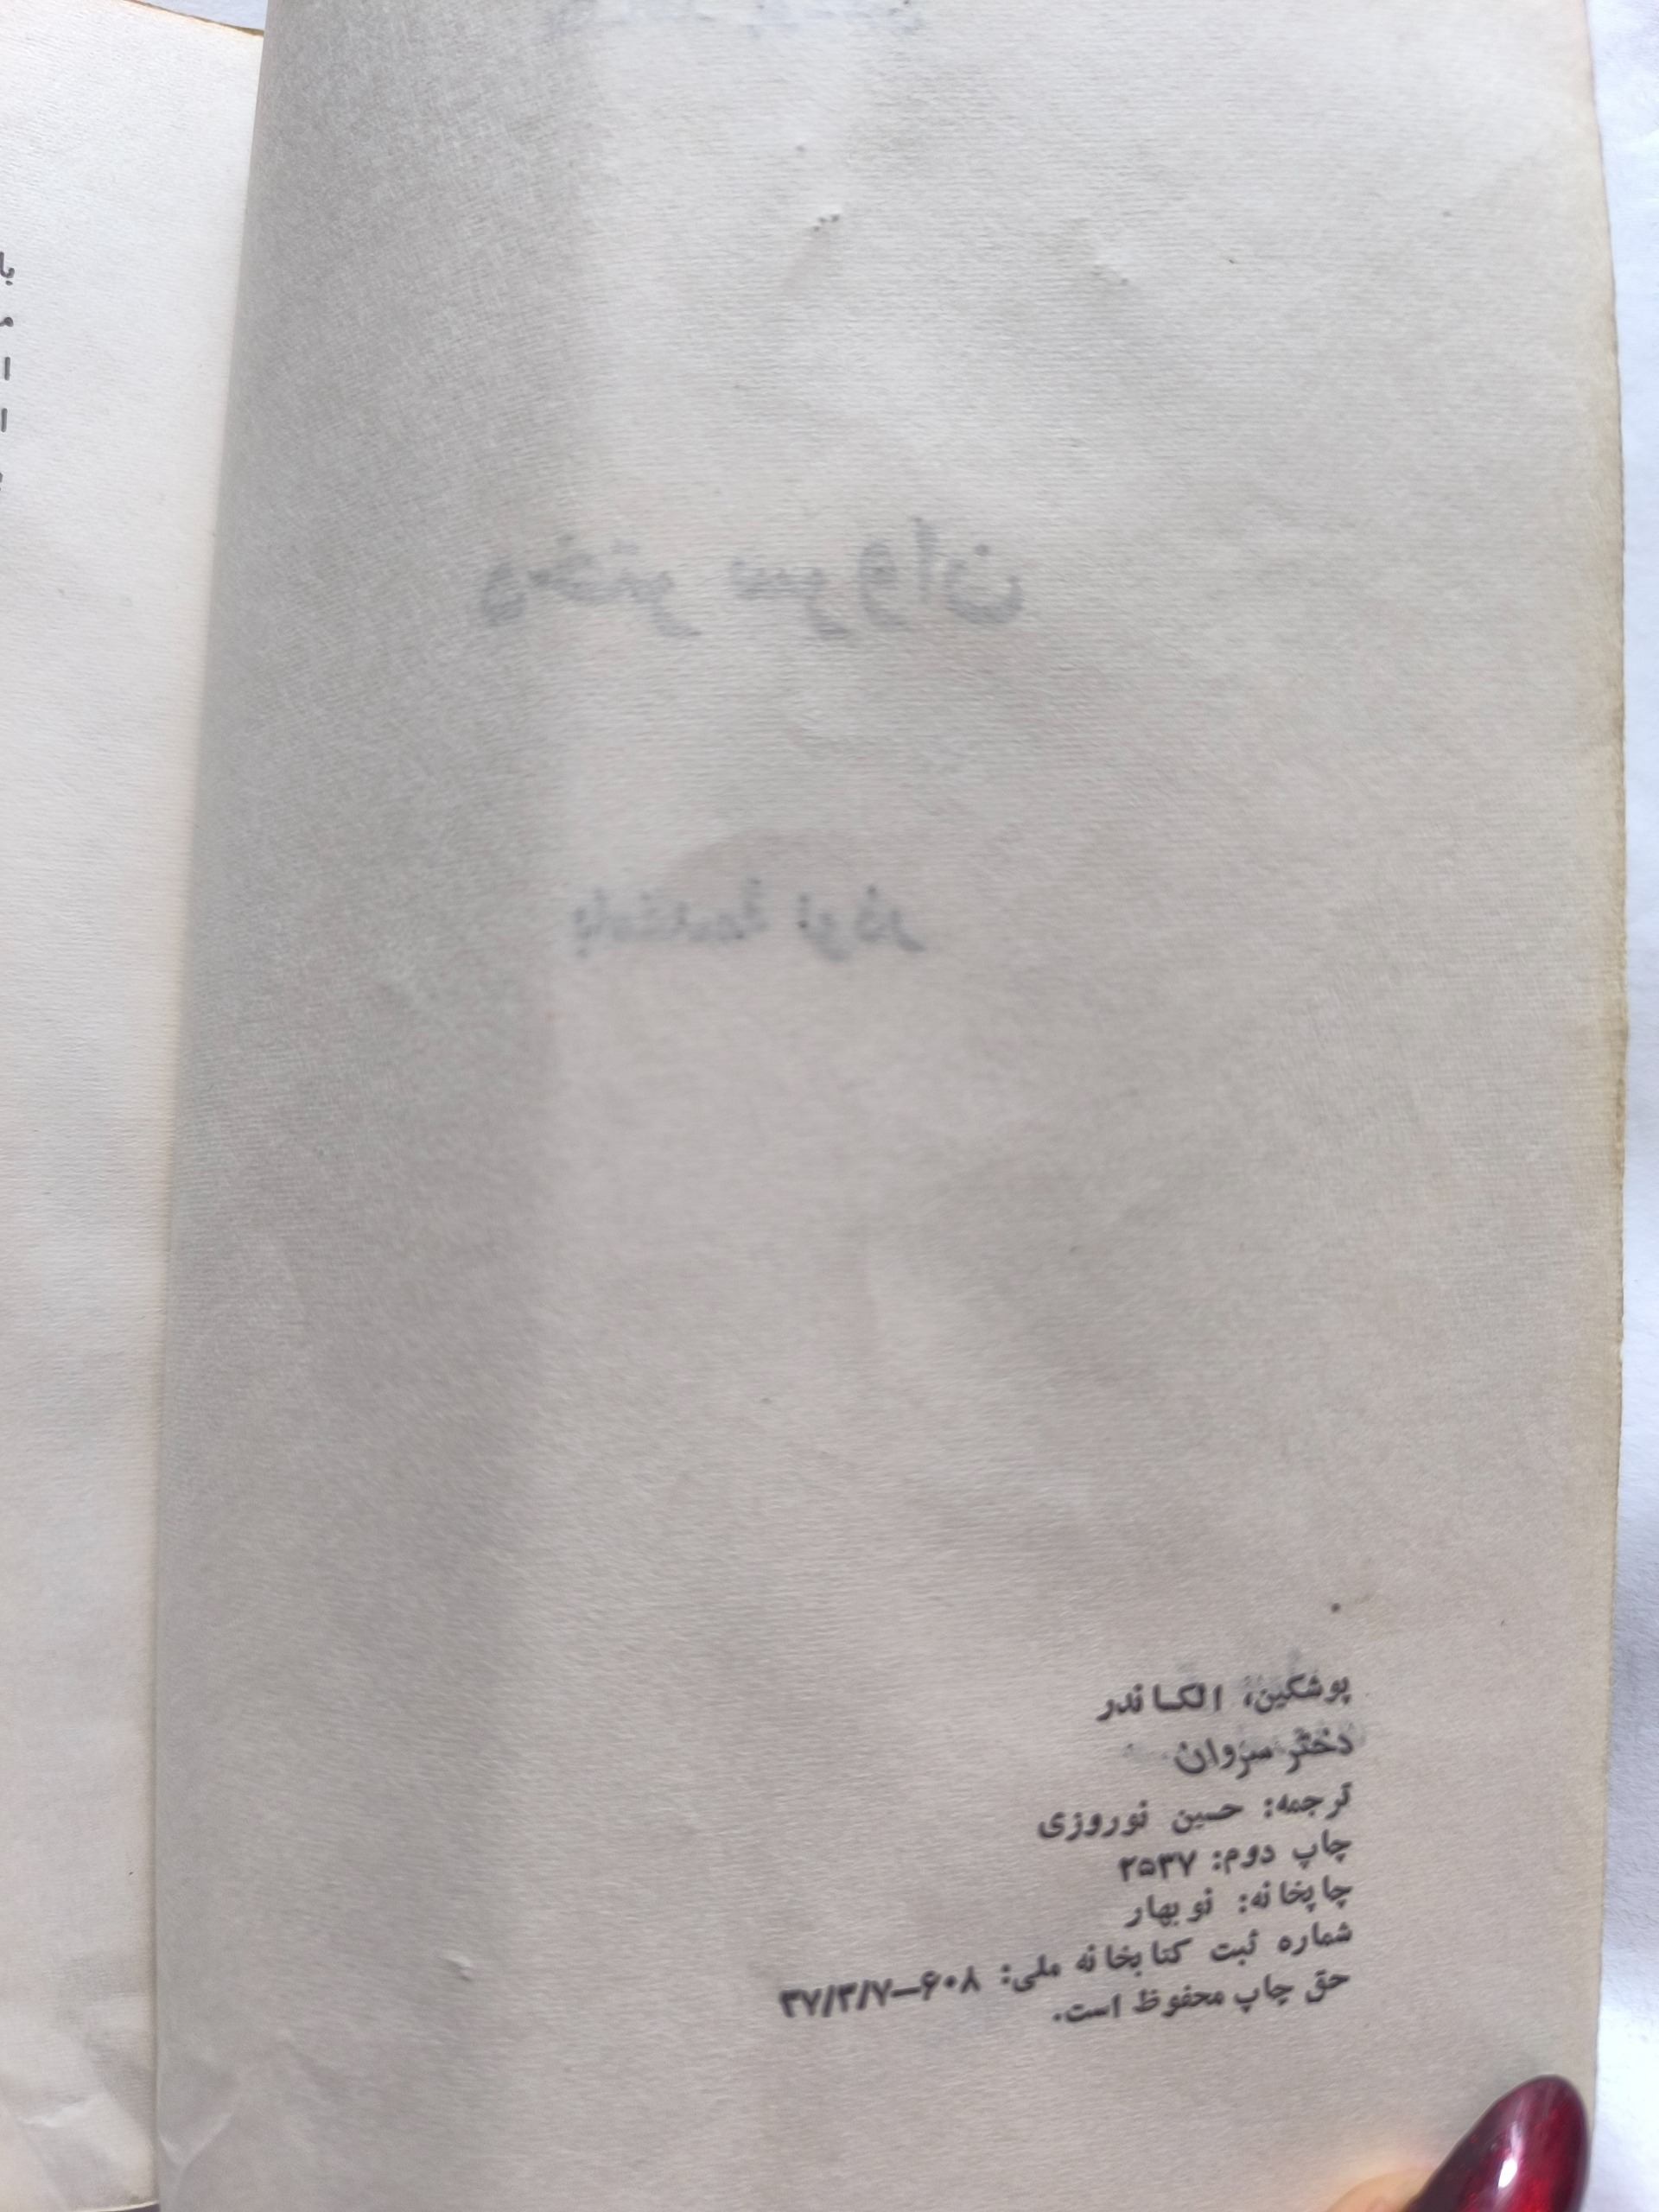 دختر سروان
پوشکین، الکساندر
دختر سروان
ترجمه: حسین نوروزی
چاپ دوم: ۲۵۳۷
چاپخانه: نوبهار
شماره ثبت کتابخانه ملی: ۶۰۸–۳۷/۳/۷
حق چاپ محفوظ است.